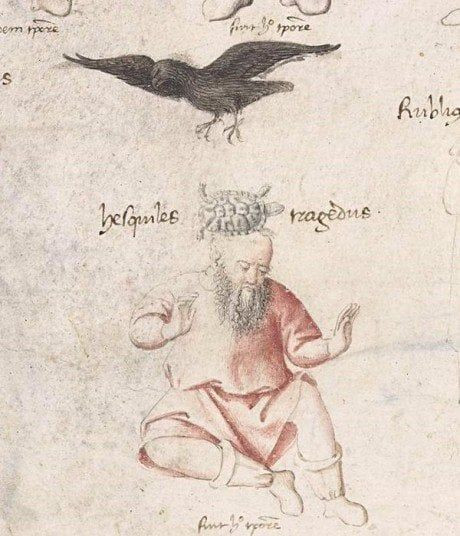 em tp̄ore fuit hº tp̄ore
s
Rubliq
hesquiles tragēdus
fuit hº tp̄ore